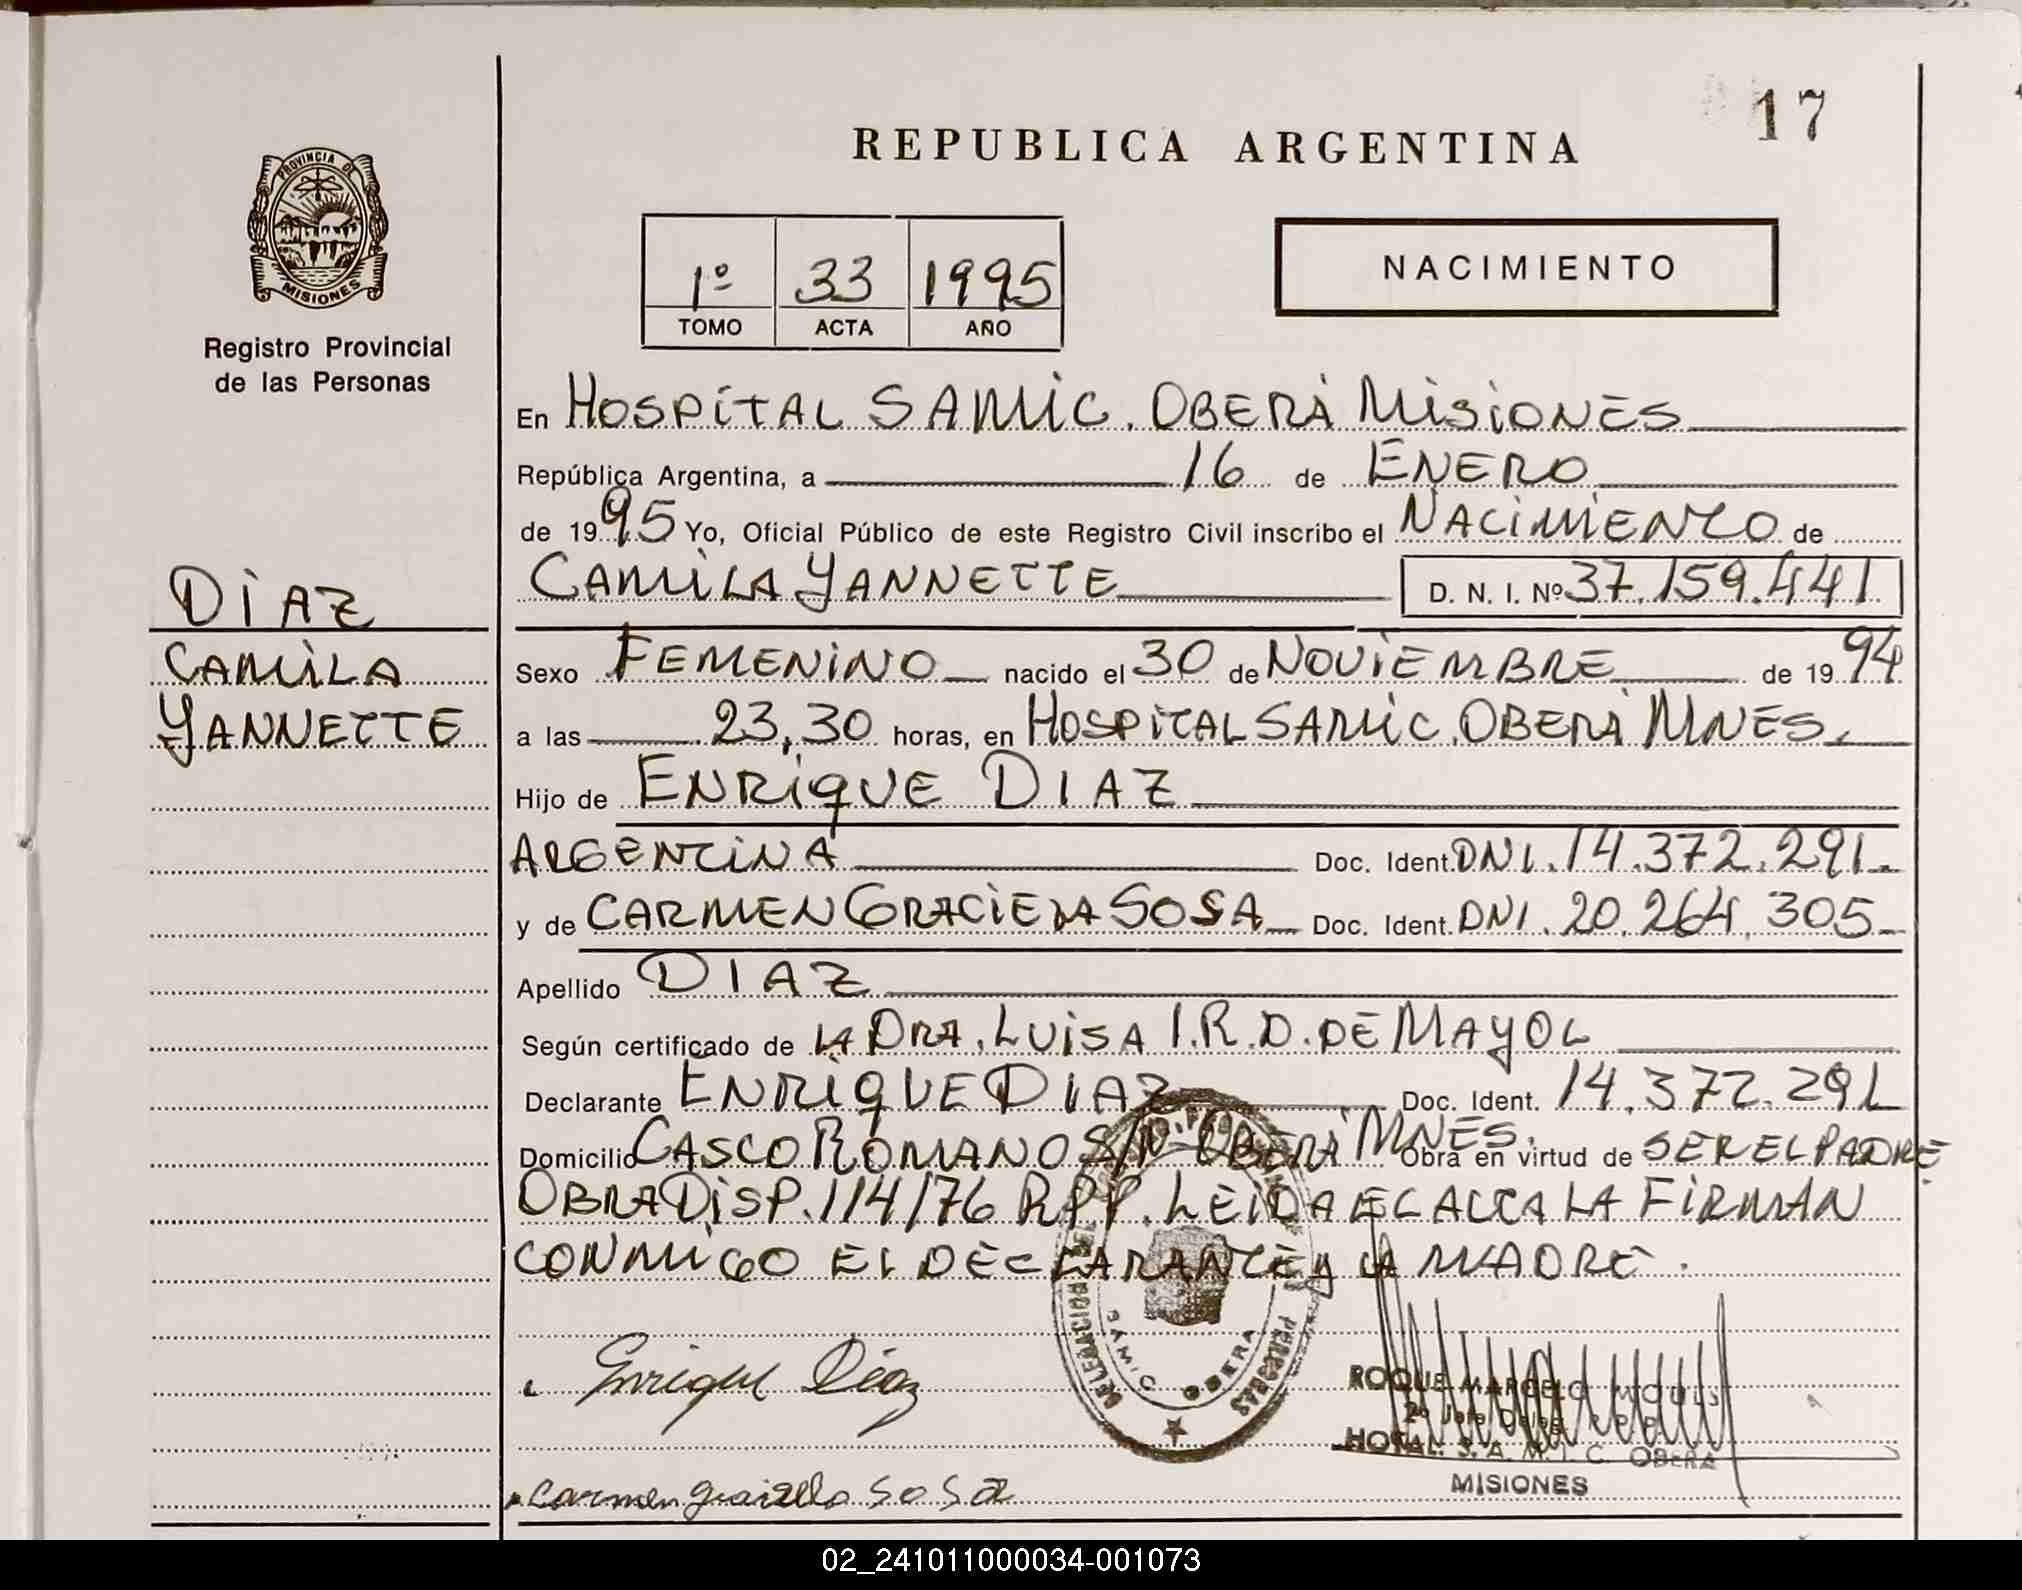 17
REPUBLICA ARGENTINA
PROVINCIA DE
MISIONES
Registro Provincial
de las Personas
1º 33 1995
TOMO ACTA AÑO
NACIMIENTO
En HOSPITAL SAMIC. OBERÁ MISIONES
República Argentina, a 16 de ENERO
de 1995 Yo, Oficial Público de este Registro Civil inscribo el NACIMIENTO de
CAMILA YANNETTE D. N. I. Nº 37.159.441
DIAZ
CAMILA
YANNETTE
Sexo FEMENINO nacido el 30 de NOVIEMBRE de 1994
a las 23,30 horas, en HOSPITAL SAMIC. OBERÁ MNES.
Hijo de ENRIQUE DIAZ
ARGENTINA Doc. Ident. DNI. 14.372.291
y de CARMEN GRACIELA SOSA Doc. Ident. DNI. 20.264.305
Apellido DIAZ
Según certificado de LA DRA. LUISA I.R.D. DE MAYOL
Declarante ENRIQUE DIAZ Doc. Ident. 14.372.291
Domicilio CASCO ROMANO S/N OBERÁ MNES. Obra en virtud de SER EL PADRE
OBRA DISP. 114/76 RPP. LEIDA EL ACTA LA FIRMAN
CONMIGO EL DECLARANTE Y LA MADRE.
Enrique Díaz
DELEGACION DEL
PERSONAS
SAMIC OBERA
ROQUE MARCELO
HOTAL. S. A. M. I. C. OBERA
MISIONES
Carmen graciella SOSA
02_241011000034-001073